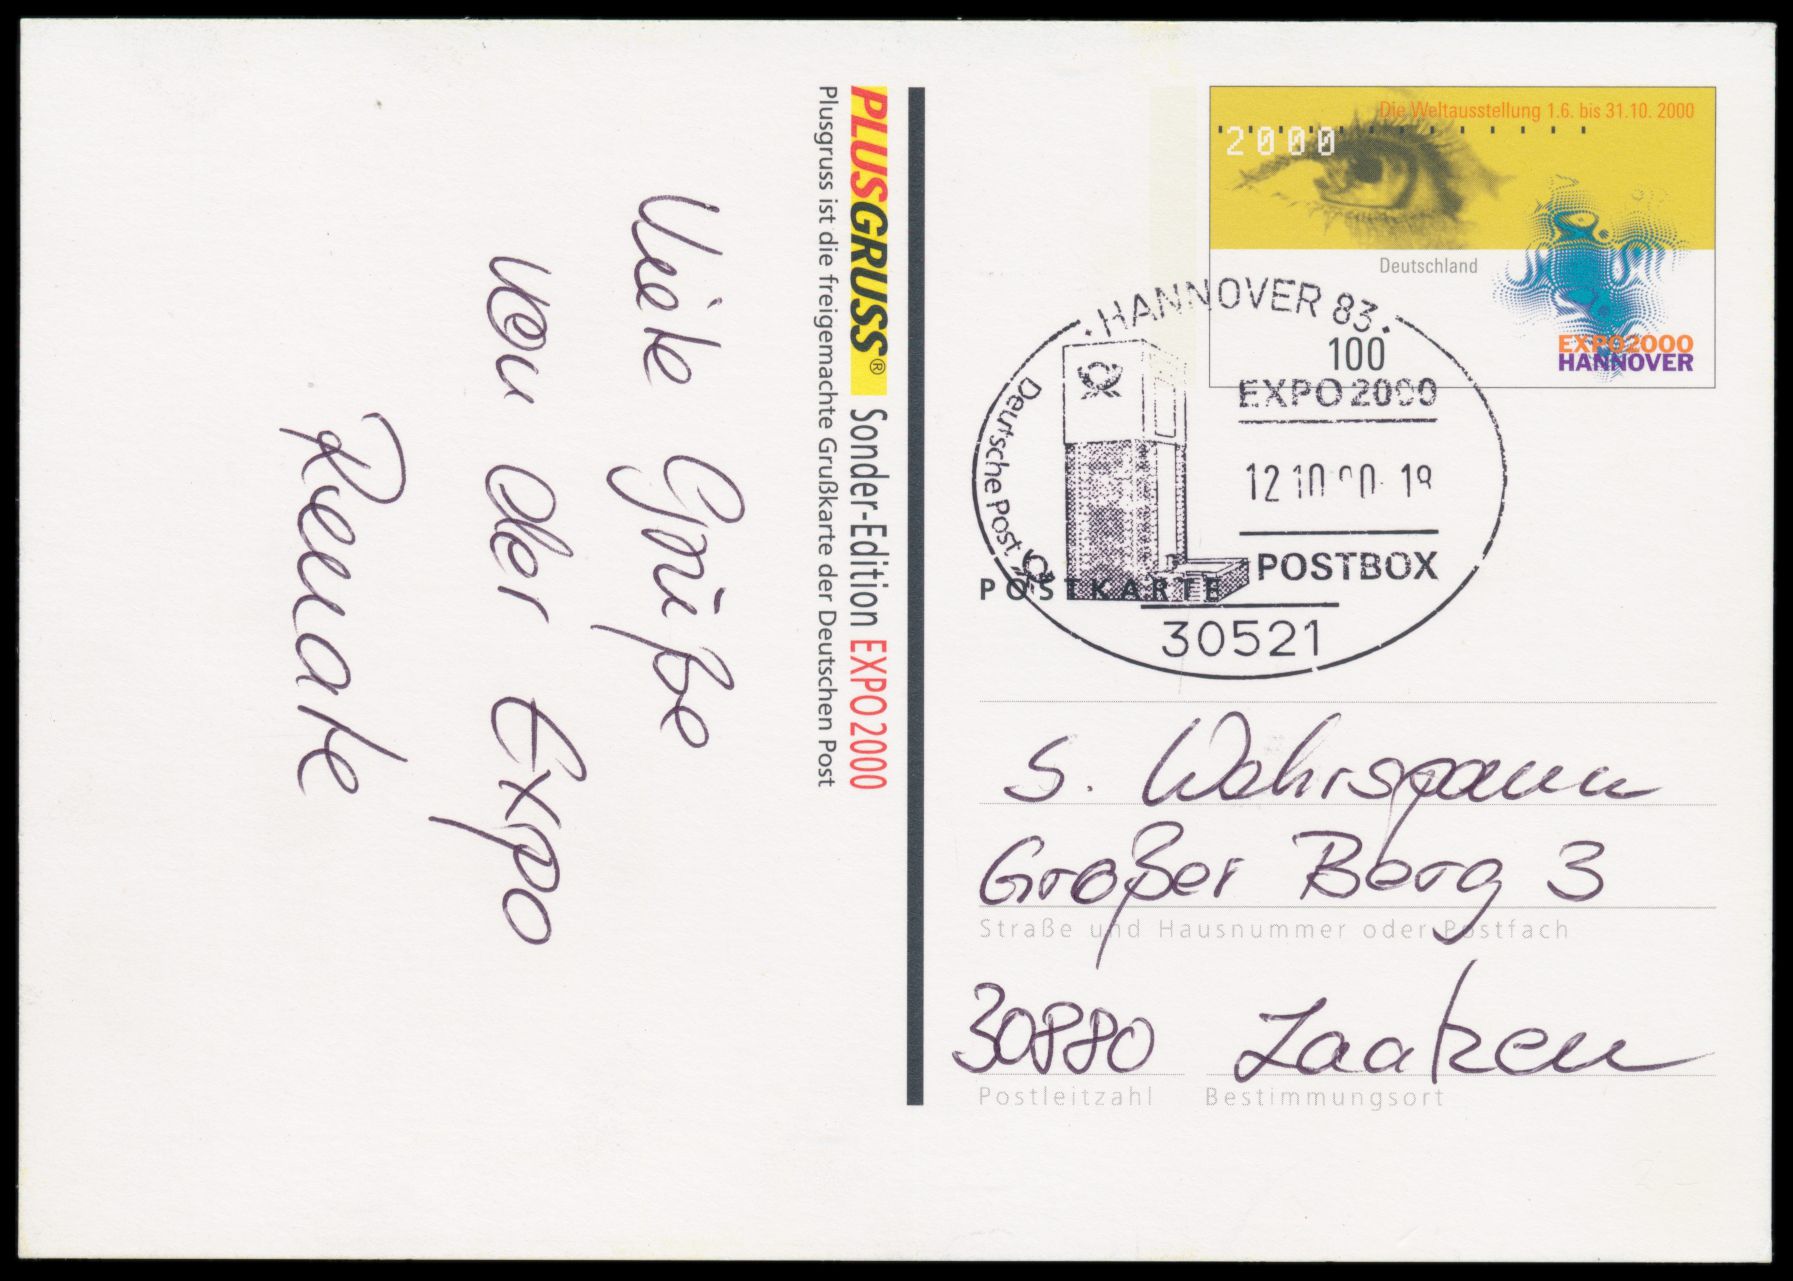 Viele Grüße
von der Expo
Renate
PLUSGRUSS® Sonder-Edition EXPO2000
Plusgruss ist die freigemachte Grußkarte der Deutschen Post
Die Weltausstellung 1.6. bis 31.10. 2000
2000
Deutschland
100
EXPO2000
HANNOVER
HANNOVER 83
Deutsche Post
EXPO 2000
POSTBOX
30521
POSTKARTE
S. Wohrspann
Großer Berg 3
Straße und Hausnummer oder Postfach
30880 Laatzen
Postleitzahl Bestimmungsort